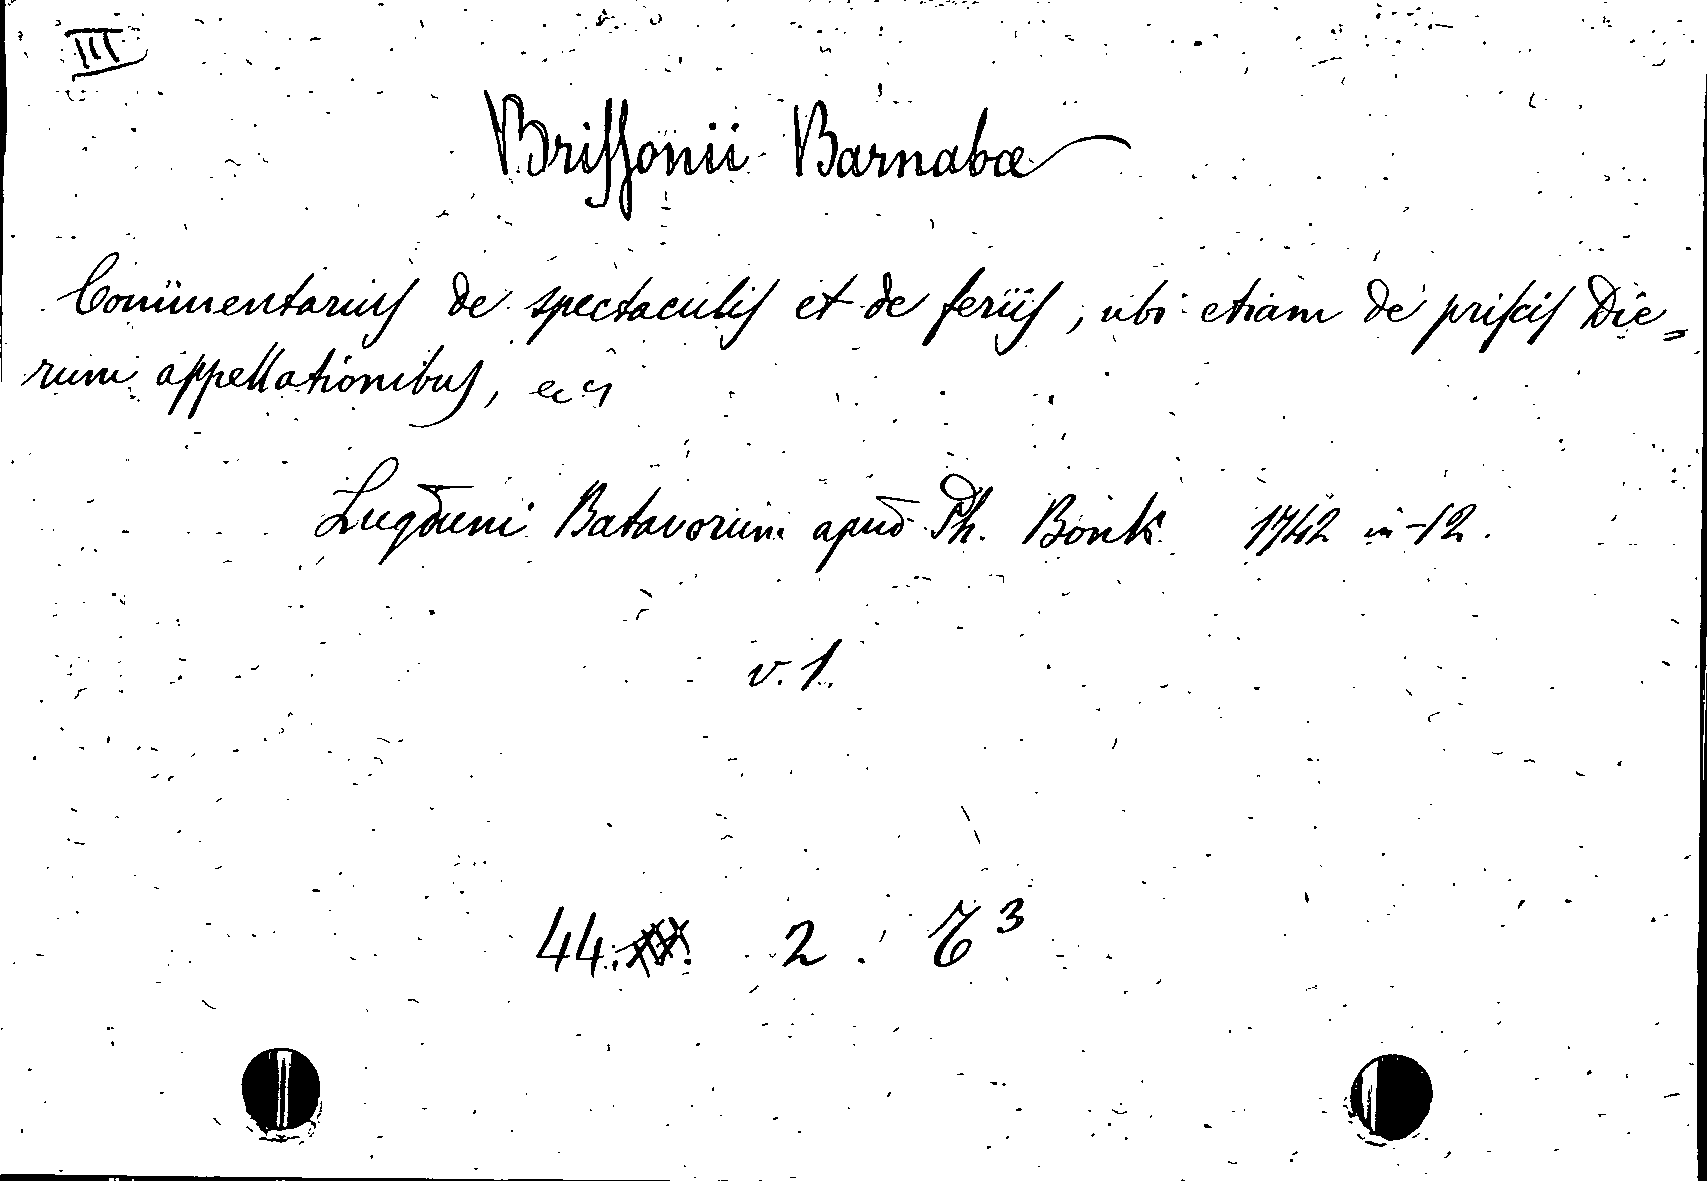 III
Brissonii Barnabæ
Commentarius de spectaculis et de feriis, ubi etiam de priscis Die=
rum appellationibus,
Lugduni Batavorum apud Ph. Bonk 1742 in-12.
v. 1.
44. 2. 3